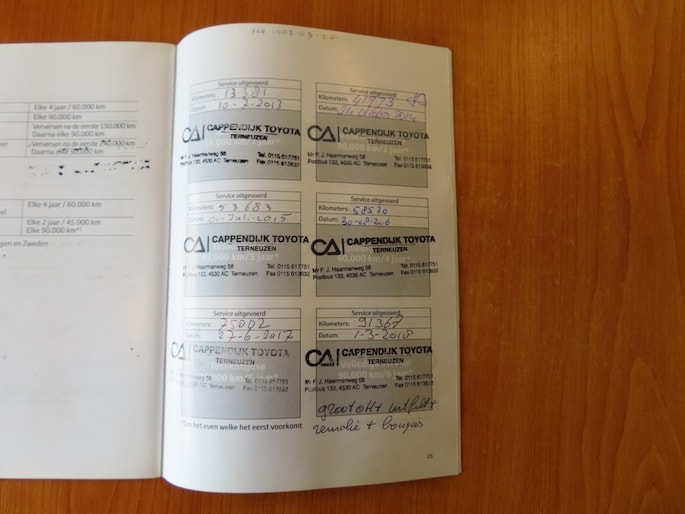 Elke 4 jaar / 60.000 km
Elke 90.000 km
Verversen na de eerste 150.000 km
Daarna elke 90.000 km
Verversen na de eerste
Daarna elke 90.000 km
Elke 4 jaar / 60.000 km
Elke 2 jaar / 45.000 km
Elke 90.000 km*¹
en Zweden
Service uitgevoerd
Kilometers: 13521
Datum: 10-7-2013
CA CAPPENDIJK TOYOTA
TERNEUZEN
Mr F. J. Haarmanweg 58
Postbus 133, 4530 AC Terneuzen
Tel. 0115 617751
Fax 0115 613632
Service uitgevoerd
Kilometers: 41773
Datum: 2014
CA CAPPENDIJK TOYOTA
TERNEUZEN
30.000 km/2 jaar*
Mr F. J. Haarmanweg 58
Postbus 133, 4530 AC Terneuzen
Tel. 0115 617751
Fax 0115 613632
Service uitgevoerd
Kilometers: 53683
Datum: 01-Juli-2015
CA CAPPENDIJK TOYOTA
TERNEUZEN
45.000 km/3 jaar*
Mr F. J. Haarmanweg 58
Postbus 133, 4530 AC Terneuzen
Tel. 0115 617751
Fax 0115 613632
Service uitgevoerd
Kilometers: 58570
Datum: 30-08-2016
CA CAPPENDIJK TOYOTA
TERNEUZEN
60.000 km/4 jaar*
Mr F. J. Haarmanweg 58
Postbus 133, 4530 AC Terneuzen
Tel. 0115 617751
Fax 0115 613632
Service uitgevoerd
Kilometers: 75002
Datum: 27-6-2017
CA CAPPENDIJK TOYOTA
TERNEUZEN
Mr F. J. Haarmanweg 58
Postbus 133, 4530 AC Terneuzen
Tel. 0115 617751
Fax 0115 613632
Service uitgevoerd
Kilometers: 91367
Datum: 1-3-2018
CA CAPPENDIJK TOYOTA
TERNEUZEN
Mr F. J. Haarmanweg 58
Postbus 133, 4530 AC Terneuzen
Tel. 0115 617751
Fax 0115 613632
groot OH+
remolie + bougies
*Om het even welke het eerst voorkomt
25